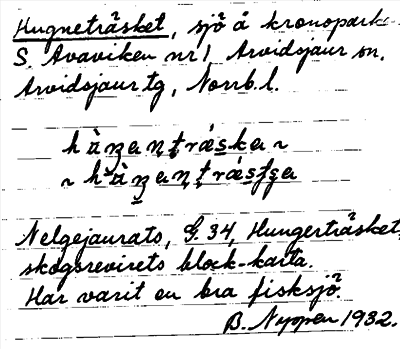 Hugneträsket, sjö å kronopark
S. Avaviken nr 1 Arvidsjaur sn.
Arvidsjaur tg, Norrb. l.
Nelgejaurats, G. 34, Hungerträsket,
skogsrevirets block-karta.
Har varit en bra fisksjö.
B. Nyopen 1932.